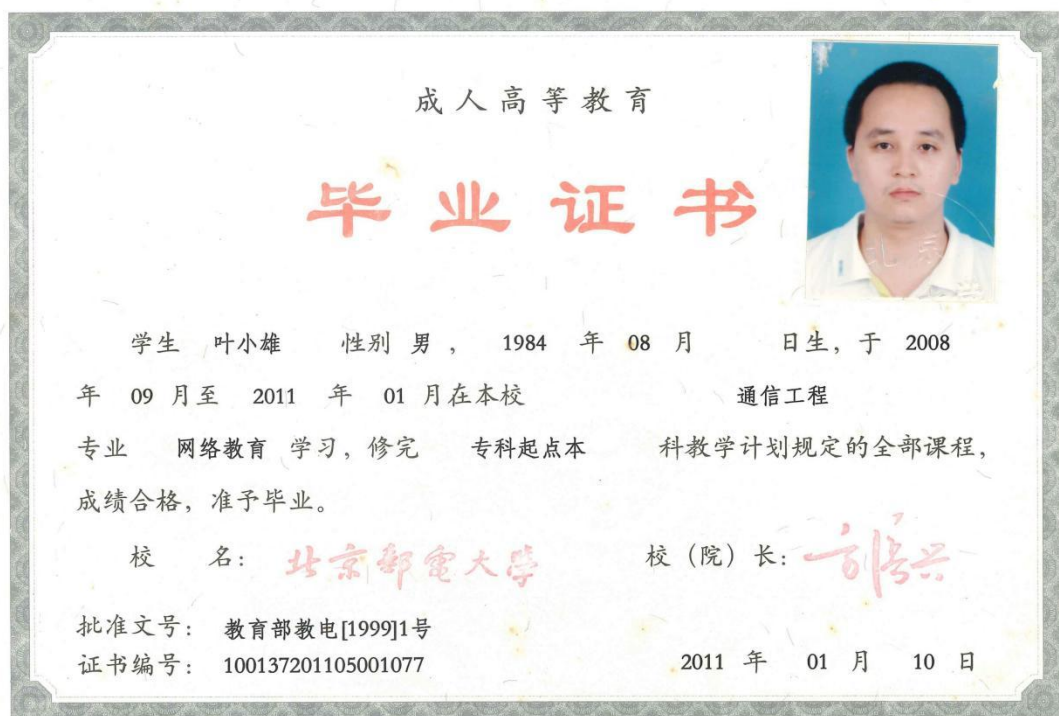 成人高等教育
毕业证书
学生 叶小雄 性别 男 ， 1984 年 08 月 日生，于 2008
年 09 月至 2011 年 01 月在本校 通信工程
专业 网络教育 学习，修完 专科起点本 科教学计划规定的全部课程，
成绩合格，准予毕业。
校 名： 北京邮电大学 校（院）长：
批准文号： 教育部教电[1999]1号
证书编号： 100137201105001077 2011 年 01 月 10 日